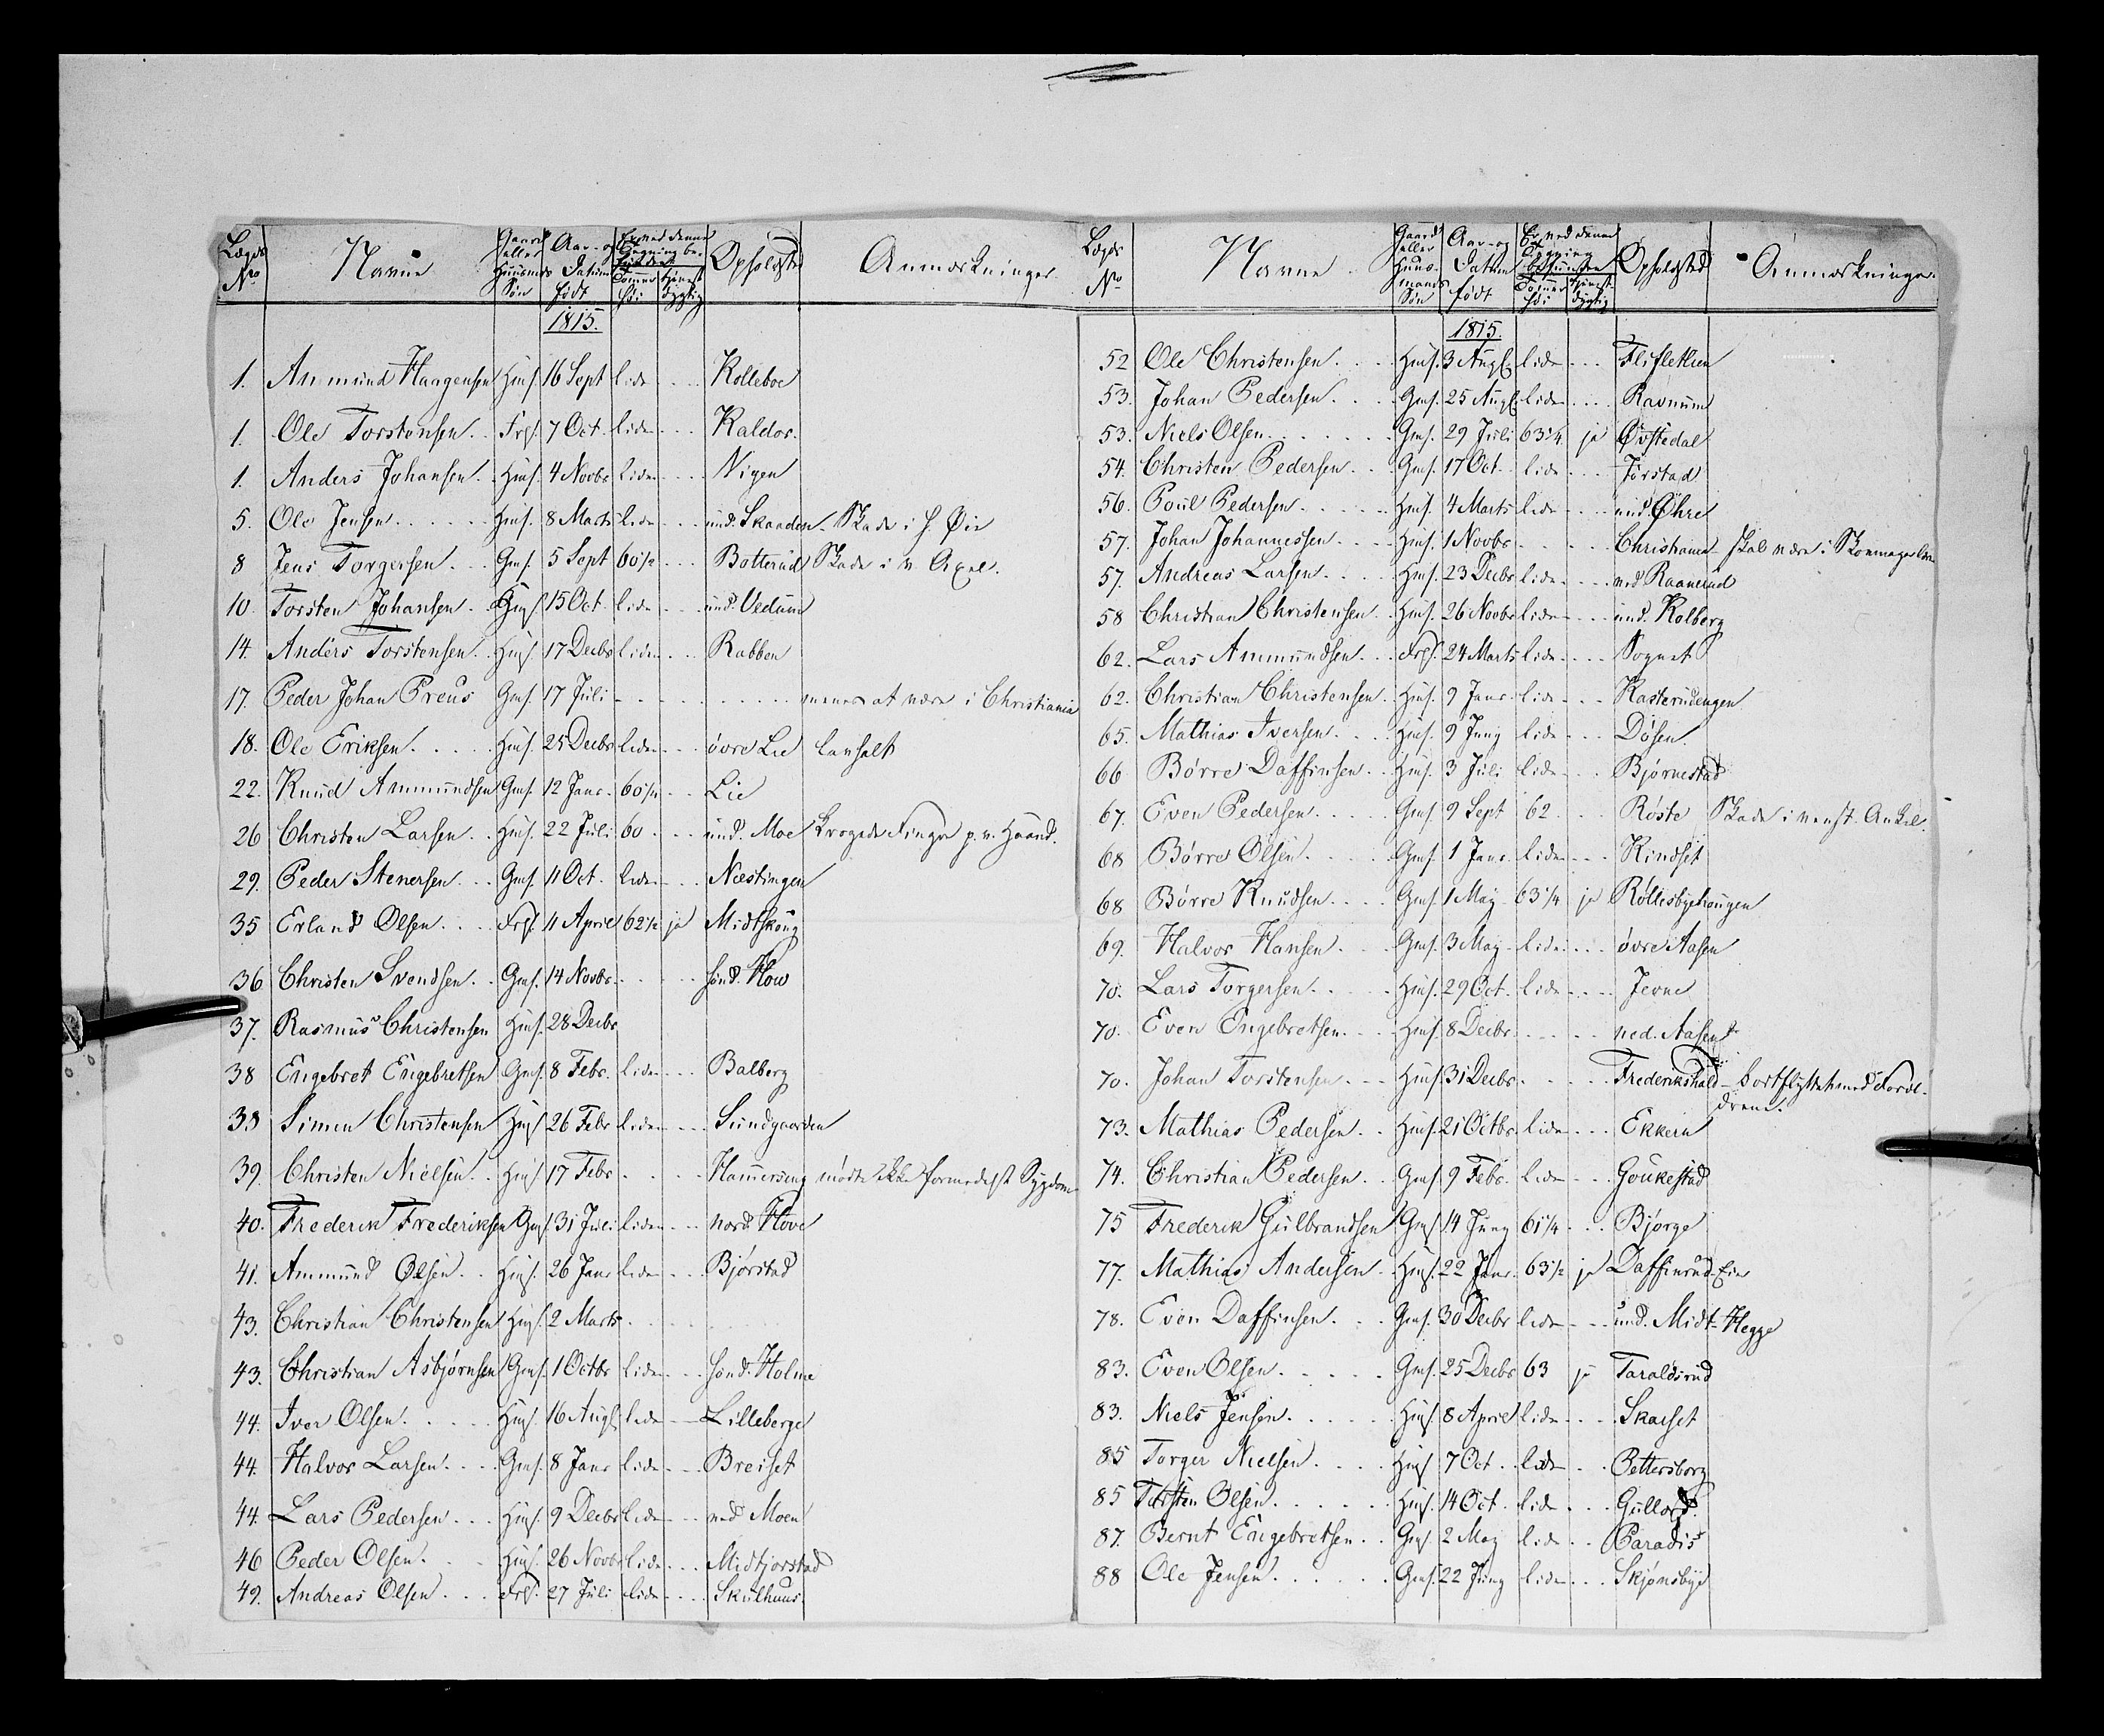 Lægds No | Navne | Gaard eller Huusmds Søn | Aar- og Datum født | Er ved denne Tegning befunden Tommer høi | tjenestdygtig | Opholdsted | Anmærkninger.
1815.
1. Ammund Haagensen Hmf. 16 Sept lide - - - Kolleboe
1. Ole Torstensen. . Frf. 7 Oct. liden - - - Kaldor.
1. Anders Johansen. . Hmf. 4 Novbr liden - - - Nigen
5. Ole Jensen. . . . . . Hmf. 8 Marts liden - - - und. Skaaden. Skade i h. Øie
8 Jens Torgersen. . . Gmf. 5 Sept 60 1/2 - - - Botterud Skade i v. Axel.
10. Torsten Johansen. . Hmf 15 Oct. liden - - - und. Vedum
14. Anders Torstensen. . Hmf 17 Decbr liden - - - Rabben
17. Peder Johan Preus Gmf. 17 Juli - - - - - - - - menes at være i Christiania
18. Ole Eriksen. . . . . Hmf. 25 Decbr liden - - - øvre Lie lanhalt
22. Knud Ammundsen Gmf. 12 Janr. 60 1/2 - - Lie
26 Christen Larsen. . Hmf. 22 Juli 60 . . . und. Moe krogede Fingre p. v. Haand.
29. Peder Stenersen. . . Gmf. 11 Oct. liden - - - Næstingen
35 Erland Olsen. . . . Frf. 11 April 62 1/2 ja Midtskoug
36 Christen Svendsen. . Gmf. 14 Novbr. - - - - - sønd. How
37. Rasmus Christensen Hmf. 28 Decbr
38 Engebret Engebretsen Gmf. 8 Febr. liden - - - Balberg
38 Simen Christensen Hmf 26 Febr liden - - - Sundgaarden
39. Christen Nielsen. . Hmf 17 Febr . . . . - Hamerseng mødte ikke formedelst Sygdom
40. Frederik Frederiksen Gmf. 31 Juli liden - - - nord. Hove
41. Ammund Olsen. . Hmf. 26 Janr liden - - - Bjørstad
43. Christian Christensen Hmf. 2 Marts . . . . . .
43. Christian Asbjørnsen Gmf. 1 Octbr liden - - - sønd. Holme
44. Iver Olsen. . . . . Hmf. 16 Augf. liden - - Lilleberge
44. Halvor Larsen. . . . Gmf. 8 Janr liden - - - Breiset
44. Lars Pedersen. . . Hmf. 9 Decbr liden - - - ned Moen
46 Peder Olsen. . . Hmf. 26 Novbr liden - - - Midtjorstad
49. Andreas Olsen. . . Frf. 27 Juli liden - - - Skulhuus.
Lægds No | Navne | Gaard eller Huusmands Søn | Aar- og Datum født | Er ved denne Tegning befunden Tommer høi | tjenstdygtig | Opholdsted | Anmærkninger.
1815.
52 Ole Christensen. . . . Hmf. 3 Augf. liden - - - Fliflethen
53. Johan Pedersen. . . . Gmf. 25 Augf. liden - - - Ravnum
53. Niels Olsen. . . . . . . Gmf. 29 Juli 63 1/4 ja Øvstedal
54. Christen Pedersen. . . Gmf. 17 Oct. lide - - - Jorstad
56. Poul Pedersen. . . . . . Hmf. 4 Marts liden - - - und. Øhre
57. Johan Johannessen. . . . Hmf. 1 Novbr. - - - - - Christiania - skal være i Skomagerlære
57. Andreas Larsen. . . . Hmf. 23 Decbr liden - - - ned Raanerud
58 Christian Christensen. . Hmf. 26 Novbr liden - - - und. Kolberg
62. Lars Ammundsen. . . Frf. 24 Marts liden - - - Sognet
62. Christian Christensen. Hmf. 9 Janr. liden - - - Kasterudengen
65. Mathias Iversen. . . . Hmf. 9 Juny liden - - - Døsen.
66 Børre Daffinsen. . . Hmf. 3 Juli liden - - - Bjørnestad
67. Even Pedersen. . . . . Gmf. 9 Sept 62 . . . Røste Skade i venst. Ankel.
68 Børre Olsen. . . . . Gmf. 1 Janr. liden - - - Kindset
68 Børre Knudsen. . . . Gmf. 1 May 63 1/4 ja Rollesbyehougen
69. Halvor Hansen. . . . Gmf. 3 May liden - - - øvre Aasen
70. Lars Torgersen. . . . . Hmf. 29 Oct. liden - - - Jevne
70. Even Engebretsen. . . . Hmf. 8 Decbr. - - - - - ned. Aasen
70. Johan Torstensen. . . . Hmf. 31 Decbr. - - - - - Frederikshald - bortflyttet med Forældrene.
73. Mathias Pedersen. . . Hmf. 21 Octbr. liden - - - Ekkern
74. Christian Pedersen. . Gmf. 9 Febr. liden - - - Goukestad
75 Frederik Gulbrandsen Gmf 14 Juny 61 1/4 . . . Bjørge
77. Mathias Andersen. . Hmf. 22 Janr. 63 1/2 ja Daffinrud-Eie
78. Even Daffinsen. . . Gmf. 30 Decbr liden - - - und. Midt-Hegge
83. Even Olsen. . . . . . Gmf. 25 Decbr 63 ja Taraldsrud
83. Niels Jensen. . . . . . Hmf. 8 April liden - - - Skarset
85 Torger Nielsen. . . . . Hmf 7 Oct. liden - - - Pettersborg
85 Torsten Olsen. . . . . . Hmf. 14 Oct. liden - - - Gullord.
87. Bernt Engebretsen. . . Gmf. 2 May liden - - Paradis
88 Ole Jensen. . . . . . Gmf. 22 Juny liden - - - Skjønsbye